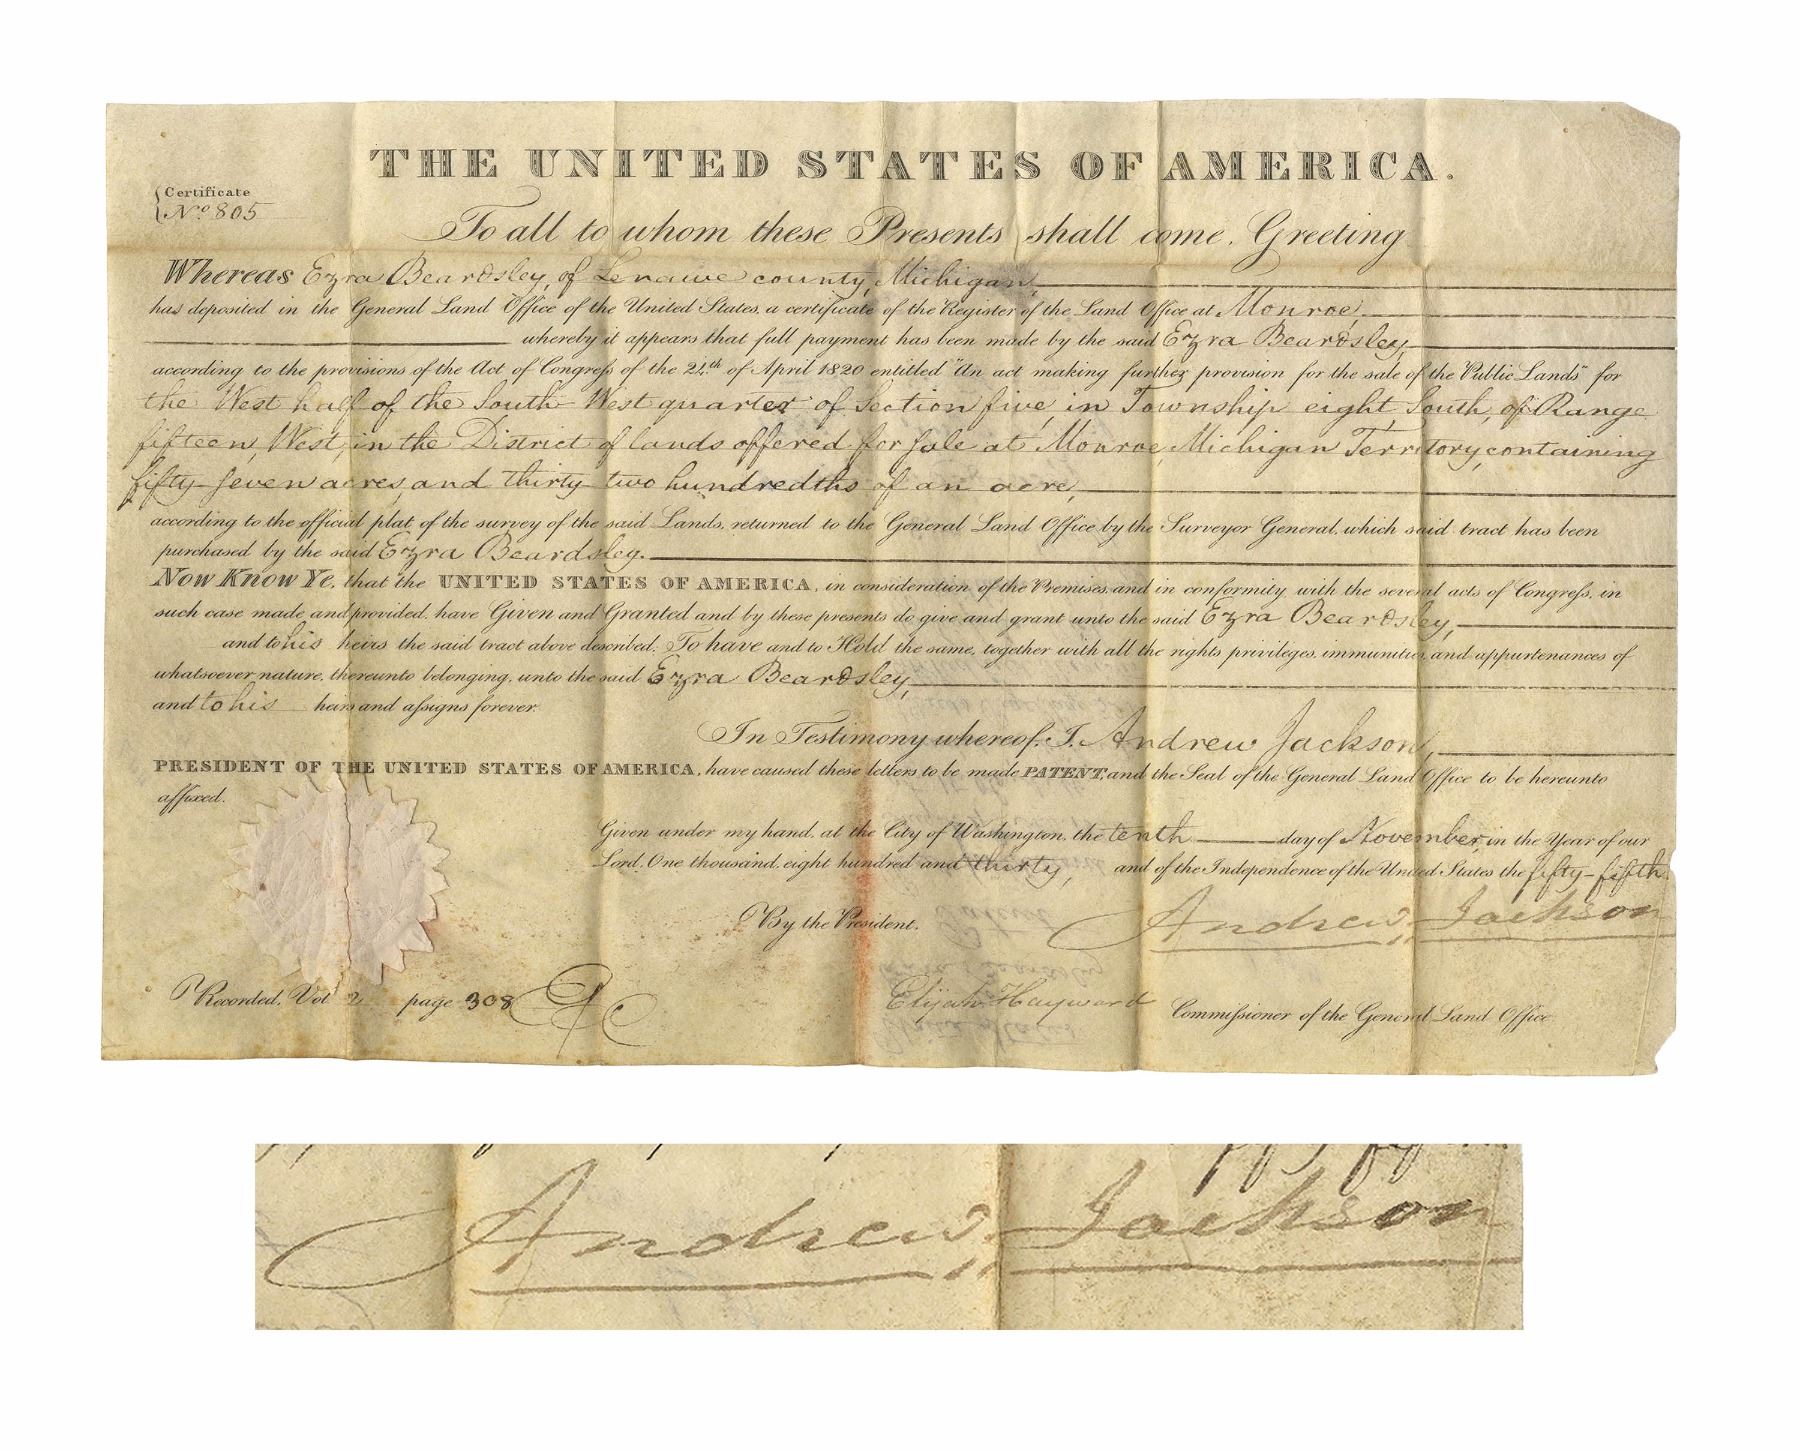 THE UNITED STATES OF AMERICA.
Certificate
No. 805
To all to whom these Presents shall come, Greeting
Whereas Ezra Beardsley, of Lenawe county, Michigan,
has deposited in the General Land Office of the United States, a certificate of the Register of the Land Office at Monroe,
whereby it appears that full payment has been made by the said Ezra Beardsley,
according to the provisions of the Act of Congress of the 24th of April 1820 entitled "An act making further provision for the sale of the Public Lands" for
the West half of the South West quarter of Section five, in Township eight, South, of Range
fifteen, West, in the District of lands offered for sale at Monroe, Michigan Territory, containing
fifty seven acres, and thirty two hundredths of an acre,
according to the official plat of the survey of the said Lands, returned to the General Land Office by the Surveyor General, which said tract has been
purchased by the said Ezra Beardsley.
Now Know Ye, that the UNITED STATES OF AMERICA, in consideration of the Premises, and in conformity with the several acts of Congress, in
such case made and provided, have Given and Granted and by these presents do give and grant unto the said Ezra Beardsley,
and to his heirs the said tract above described; To have and to Hold the same, together with all the rights privileges, immunities and appurtenances of
whatsoever nature, thereunto belonging, unto the said Ezra Beardsley,
and to his heirs and assigns forever.
In Testimony whereof, I, Andrew Jackson,
PRESIDENT OF THE UNITED STATES OF AMERICA, have caused these letters to be made PATENT, and the Seal of the General Land Office to be hereunto
affixed.
Given under my hand, at the City of Washington, the tenth day of November, in the Year of our
Lord, One thousand, eight hundred and thirty, and of the Independence of the United States the fifty-fifth
Andrew Jackson
By the President.
Elijah Hayward Commissioner of the General Land Office
Recorded, Vol 2 page 308
Andrew Jackson